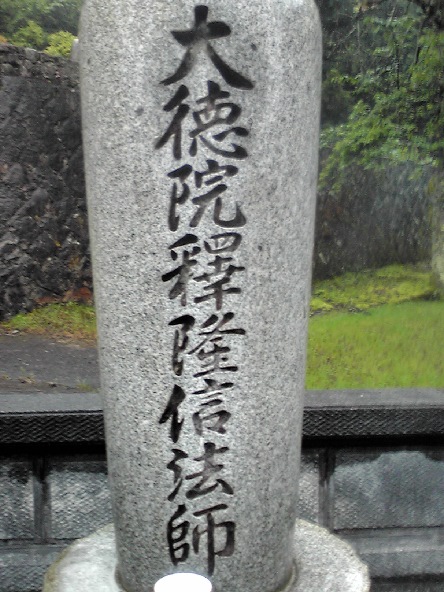 大徳院釋隆信法師